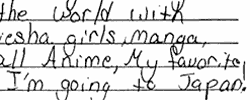 the World with
iesha girls, manga,
all Anime, My favorite!
I'm going to Japan!